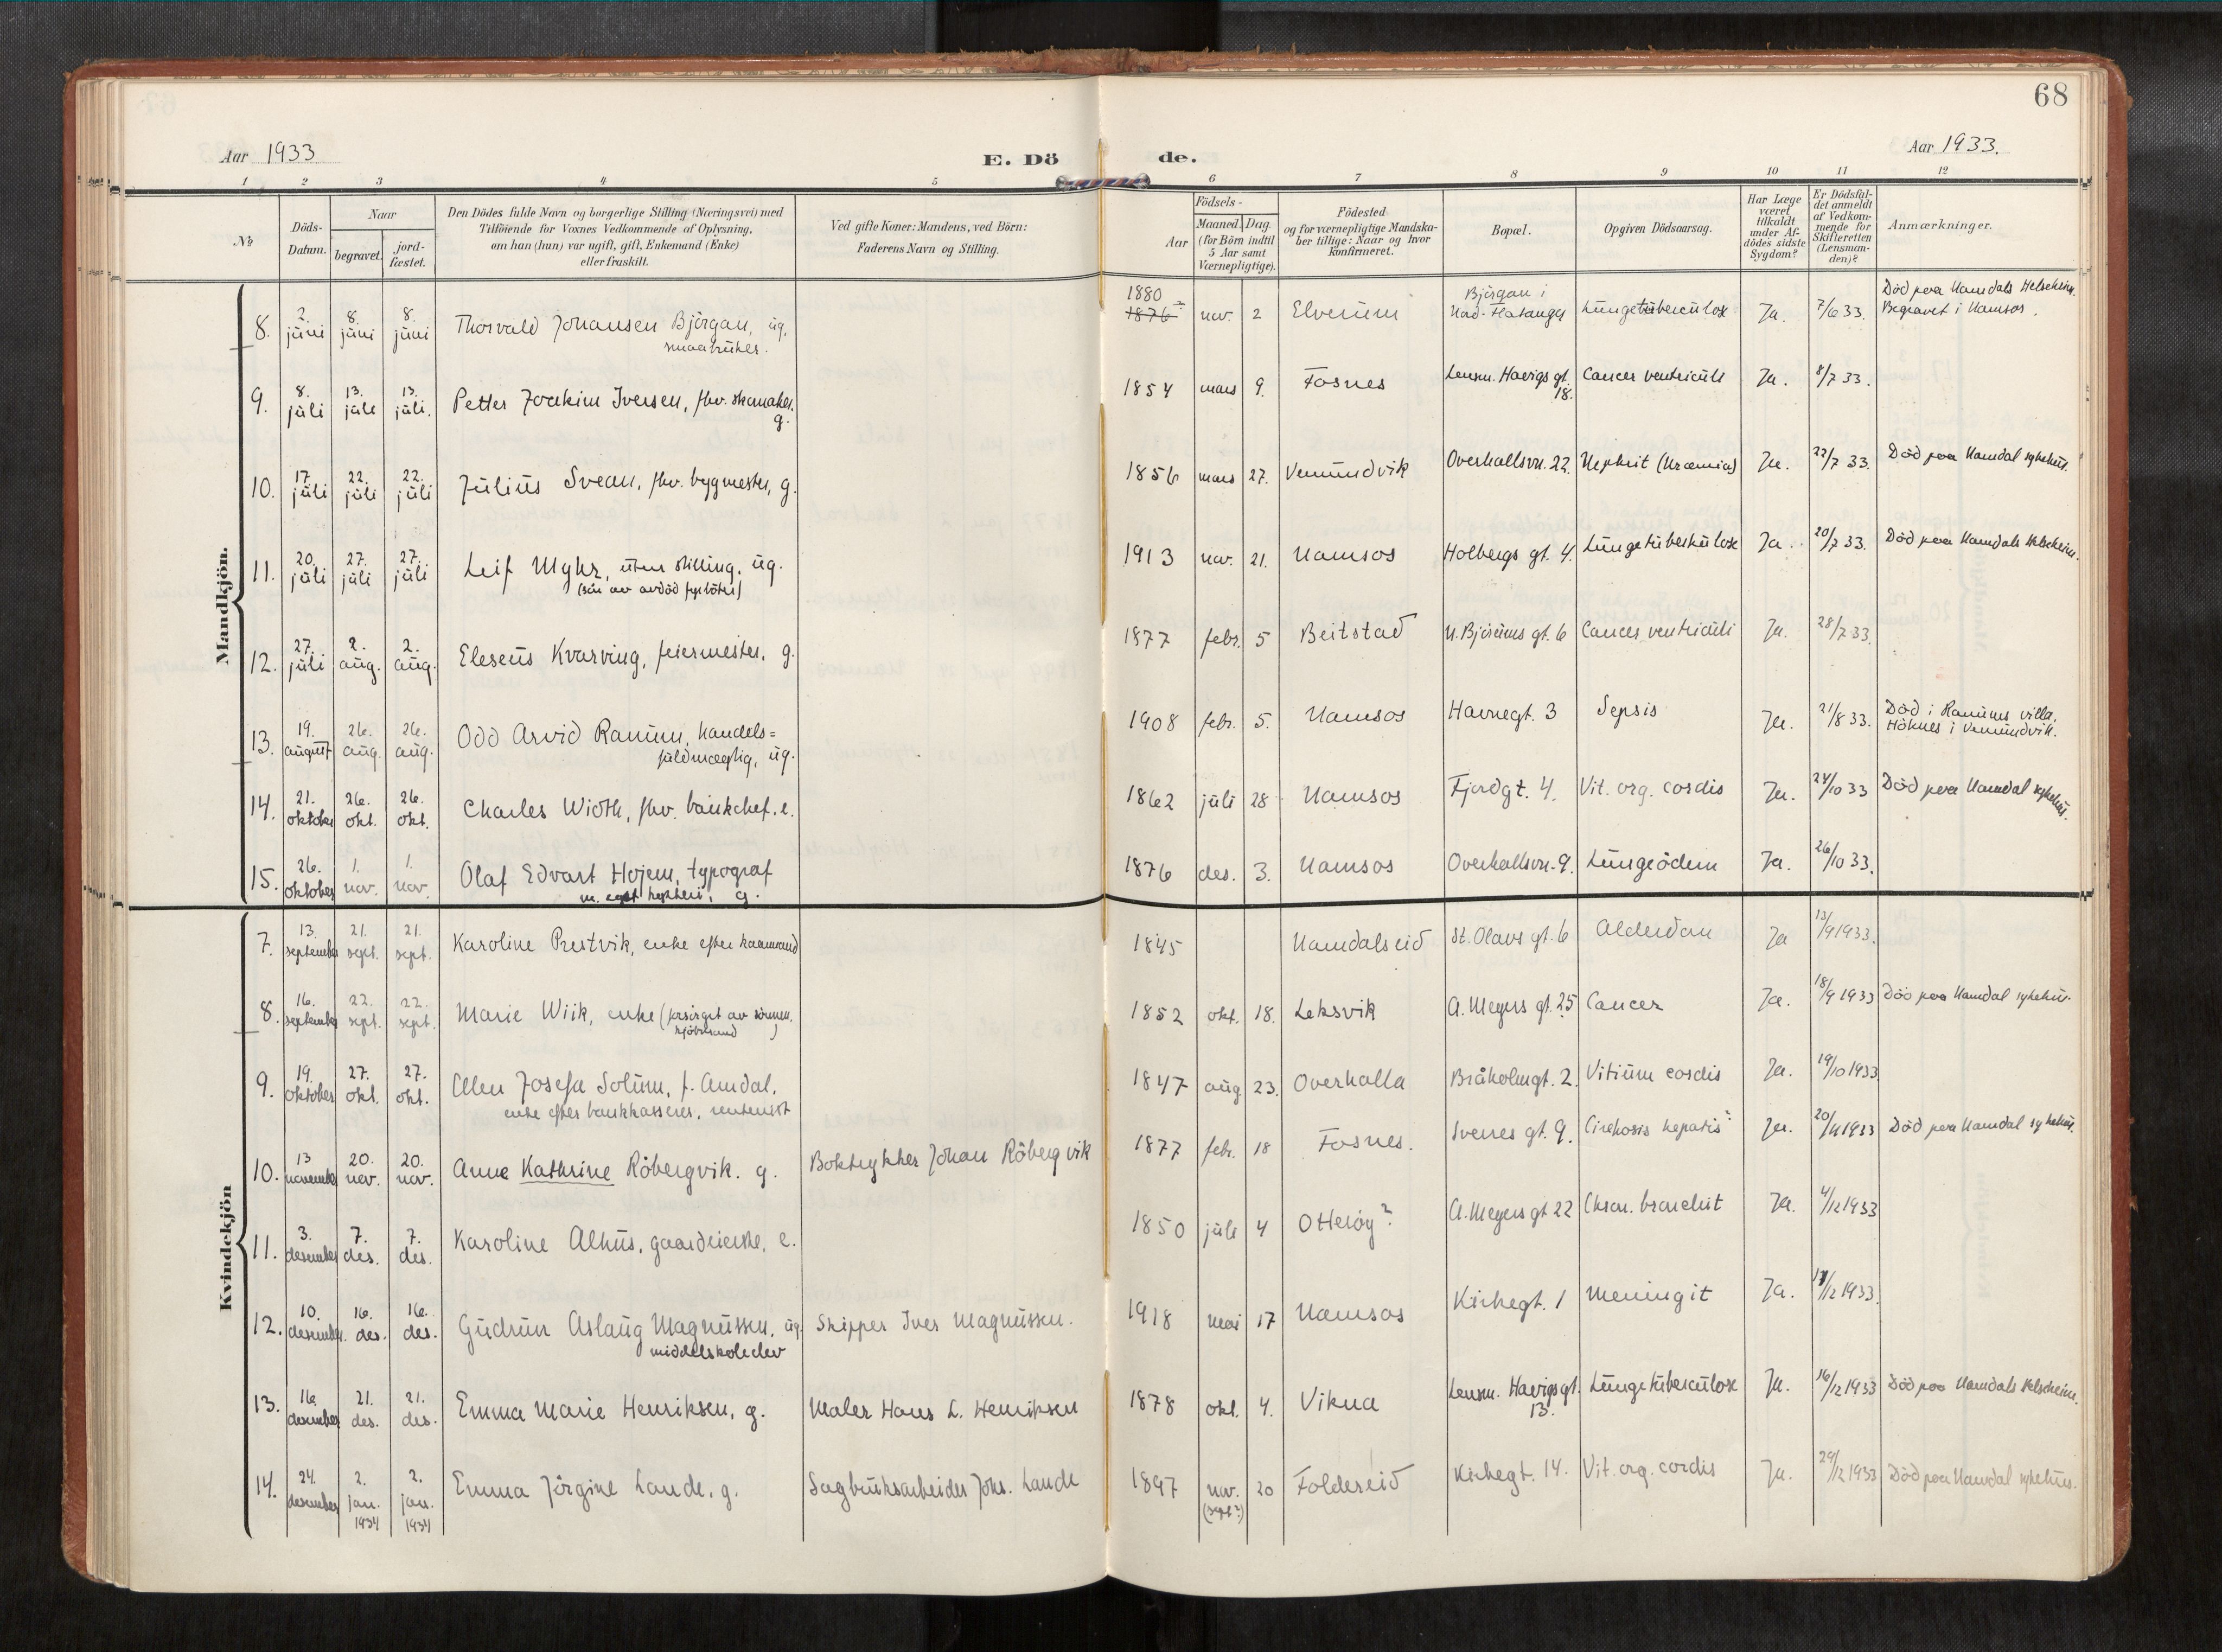 68
Aar 1933
E. Dö
de.
Aar 1933.
1 2 3 4 5 6 7 8 9 10 11 12
No
Döds-
Datum.
Naar
begravet.
jord-
fæstet.
Den Dödes fulde Navn og borgerlige Stilling (Næringsvei) med
Tilföiende for Voxnes Vedkommende af Oplysning,
om han (hun) var ugift, gift, Enkemand (Enke)
eller fraskilt.
Ved gifte Koner: Mandens, ved Börn:
Faderens Navn og Stilling.
Födsels-
Aar
Maaned. Dag.
(for Börn indtil
5 Aar samt
Værnepligtige).
Födested
og for værnepligtige Mandska-
ber tillige: Naar og hvor
konfirmeret.
Bopæl.
Opgiven Dödsaarsag.
Har Læge
været
tilkaldt
under Af-
dödes sidste
Sygdom?
Er Dödsfal-
det anmeldt
af Vedkom-
mende for
Skifteretten
(Lensman-
den)?
Anmærkninger.
Mandkjön.
8. 2. juni 8. juni 8. juni Thorvald Johansen Björgan, ug.
smaabruker.
1880
1876 nov. 2 Elverum Björgan i
Nord-Flatanger Lungetuberculose Ja. 7/6 33. Död paa Namdals Helseheim.
Begravet i Namsos.
9. 8. juli 13. juli 13. juli. Petter Joakim Iversen, fhv. skomaker.
g.
1854 mars 9. Fosnes Lensm. Havigs gt.
18. Cancer ventriculi Ja. 8/7 33.
10. 17. juli 22. juli 22. juli Julius Svean, fhv. bygmester, g.
1856 mars 27. Vemundvik Overhallsvn. 22. Nephrit (Uræmia) Ja. 22/7 33. Död paa Namdal sykehus.
11. 20. juli 27. juli 27. juli Leif Myhr, uten stilling, ug.
(sön av avdöd fyrböter)
1913 nov. 21. Namsos Holbergs gt. 4. Lungetuberkulose Ja. 20/7 33. Död paa Namdals Helseheim.
12. 27. juli 2. aug. 2. aug. Eleseus Kvarving, feiermester, g.
1877 febr. 5 Beitstad N. Björáms gt. 6 Cancer ventriculi Ja. 28/7 33.
13. 19. august 26. aug. 26. aug. Odd Arvid Ranum, handels=
fuldmægtig, ug.
1908 febr. 5. Namsos Havnegt. 3 Sepsis Ja. 21/8 33. Död i Ranums villa,
Höknes i Vemundvik.
14. 21. oktober 26. okt. 26. okt. Charles Wioth, fhv. bankchef, e.
1862 juli 28 Namsos Fjordgt. 4. Vit. org. cordis Ja. 24/10 33 Död paa Namdal sykehus.
15. 26. oktober 1. nov. 1. nov. Olaf Edvart Hojem, typograf
m. eget trykkeri, g.
1876 des. 3. Namsos Overhallsvn. 9. Lungeödem Ja. 26/10 33.
Kvindekjön
7. 13. september 21. sept. 21. sept. Karoline Prestvik, enke efter kaarmand
1845 Namdalseid St. Olavs gt. 6 Alderdom Ja 13/9 1933.
8. 16. september 22. sept. 22. sept. Marie Wiik, enke (forsörget av sönnen,
kjöbmand)
1852 okt. 18. Leksvik A. Meyers gt. 25 Cancer Ja. 18/9 1933 Död paa Namdal sykehus.
9. 19. oktober 27. okt. 27. okt. Ellen Josefa Solum, f. Amdal,
enke efter bankkasserer, rentenist
1847 aug 23. Overhalla Bråholmgt. 2. Vitium cordis Ja. 19/10 1933
10. 13 november 20. nov. 20. nov. Anna Kathrine Röbergvik. g. Boktrykker Johan Röbergvik
1877 febr. 18 Fosnes. Sverres gt. 9. Cirrhosis hepatis? Ja. 20/11 1933 Död paa Namdal sykehus.
11. 3. desember 7. des. 7. des. Karoline Alhus, gaardeierske, e.
1850 juli 4 Otteröy? A. Meyers gt 22 Chron. bronchit Ja. 4/12 1933
12. 10. desember. 16. des. 16. des. Gudrun Aslaug Magnussen, ug.
middelskoleelev Skipper Iver Magnussen.
1918 mai 17 Namsos Kirkegt. 1 Meningit Ja. 11/12 1933.
13. 16. desember 21. des. 21. des. Emma Marie Henriksen, g. Maler Hans L. Henriksen
1878 okt. 4. Vikna Lensm. Havigs gt.
13. Lungetuberculose Ja. 16/12 1933 Död paa Namdals Helseheim.
14. 24. desember 2. jan. 1934 2. jan. 1934 Emma Jörgine Lande, g. Sagbruksarbeider Johs. Lande
1897 nov. 20 Foldereid Kirkegt. 14. Vit. org. cordis Ja. 29/12 1933 Död paa Namdal sykehus.
(sept?)